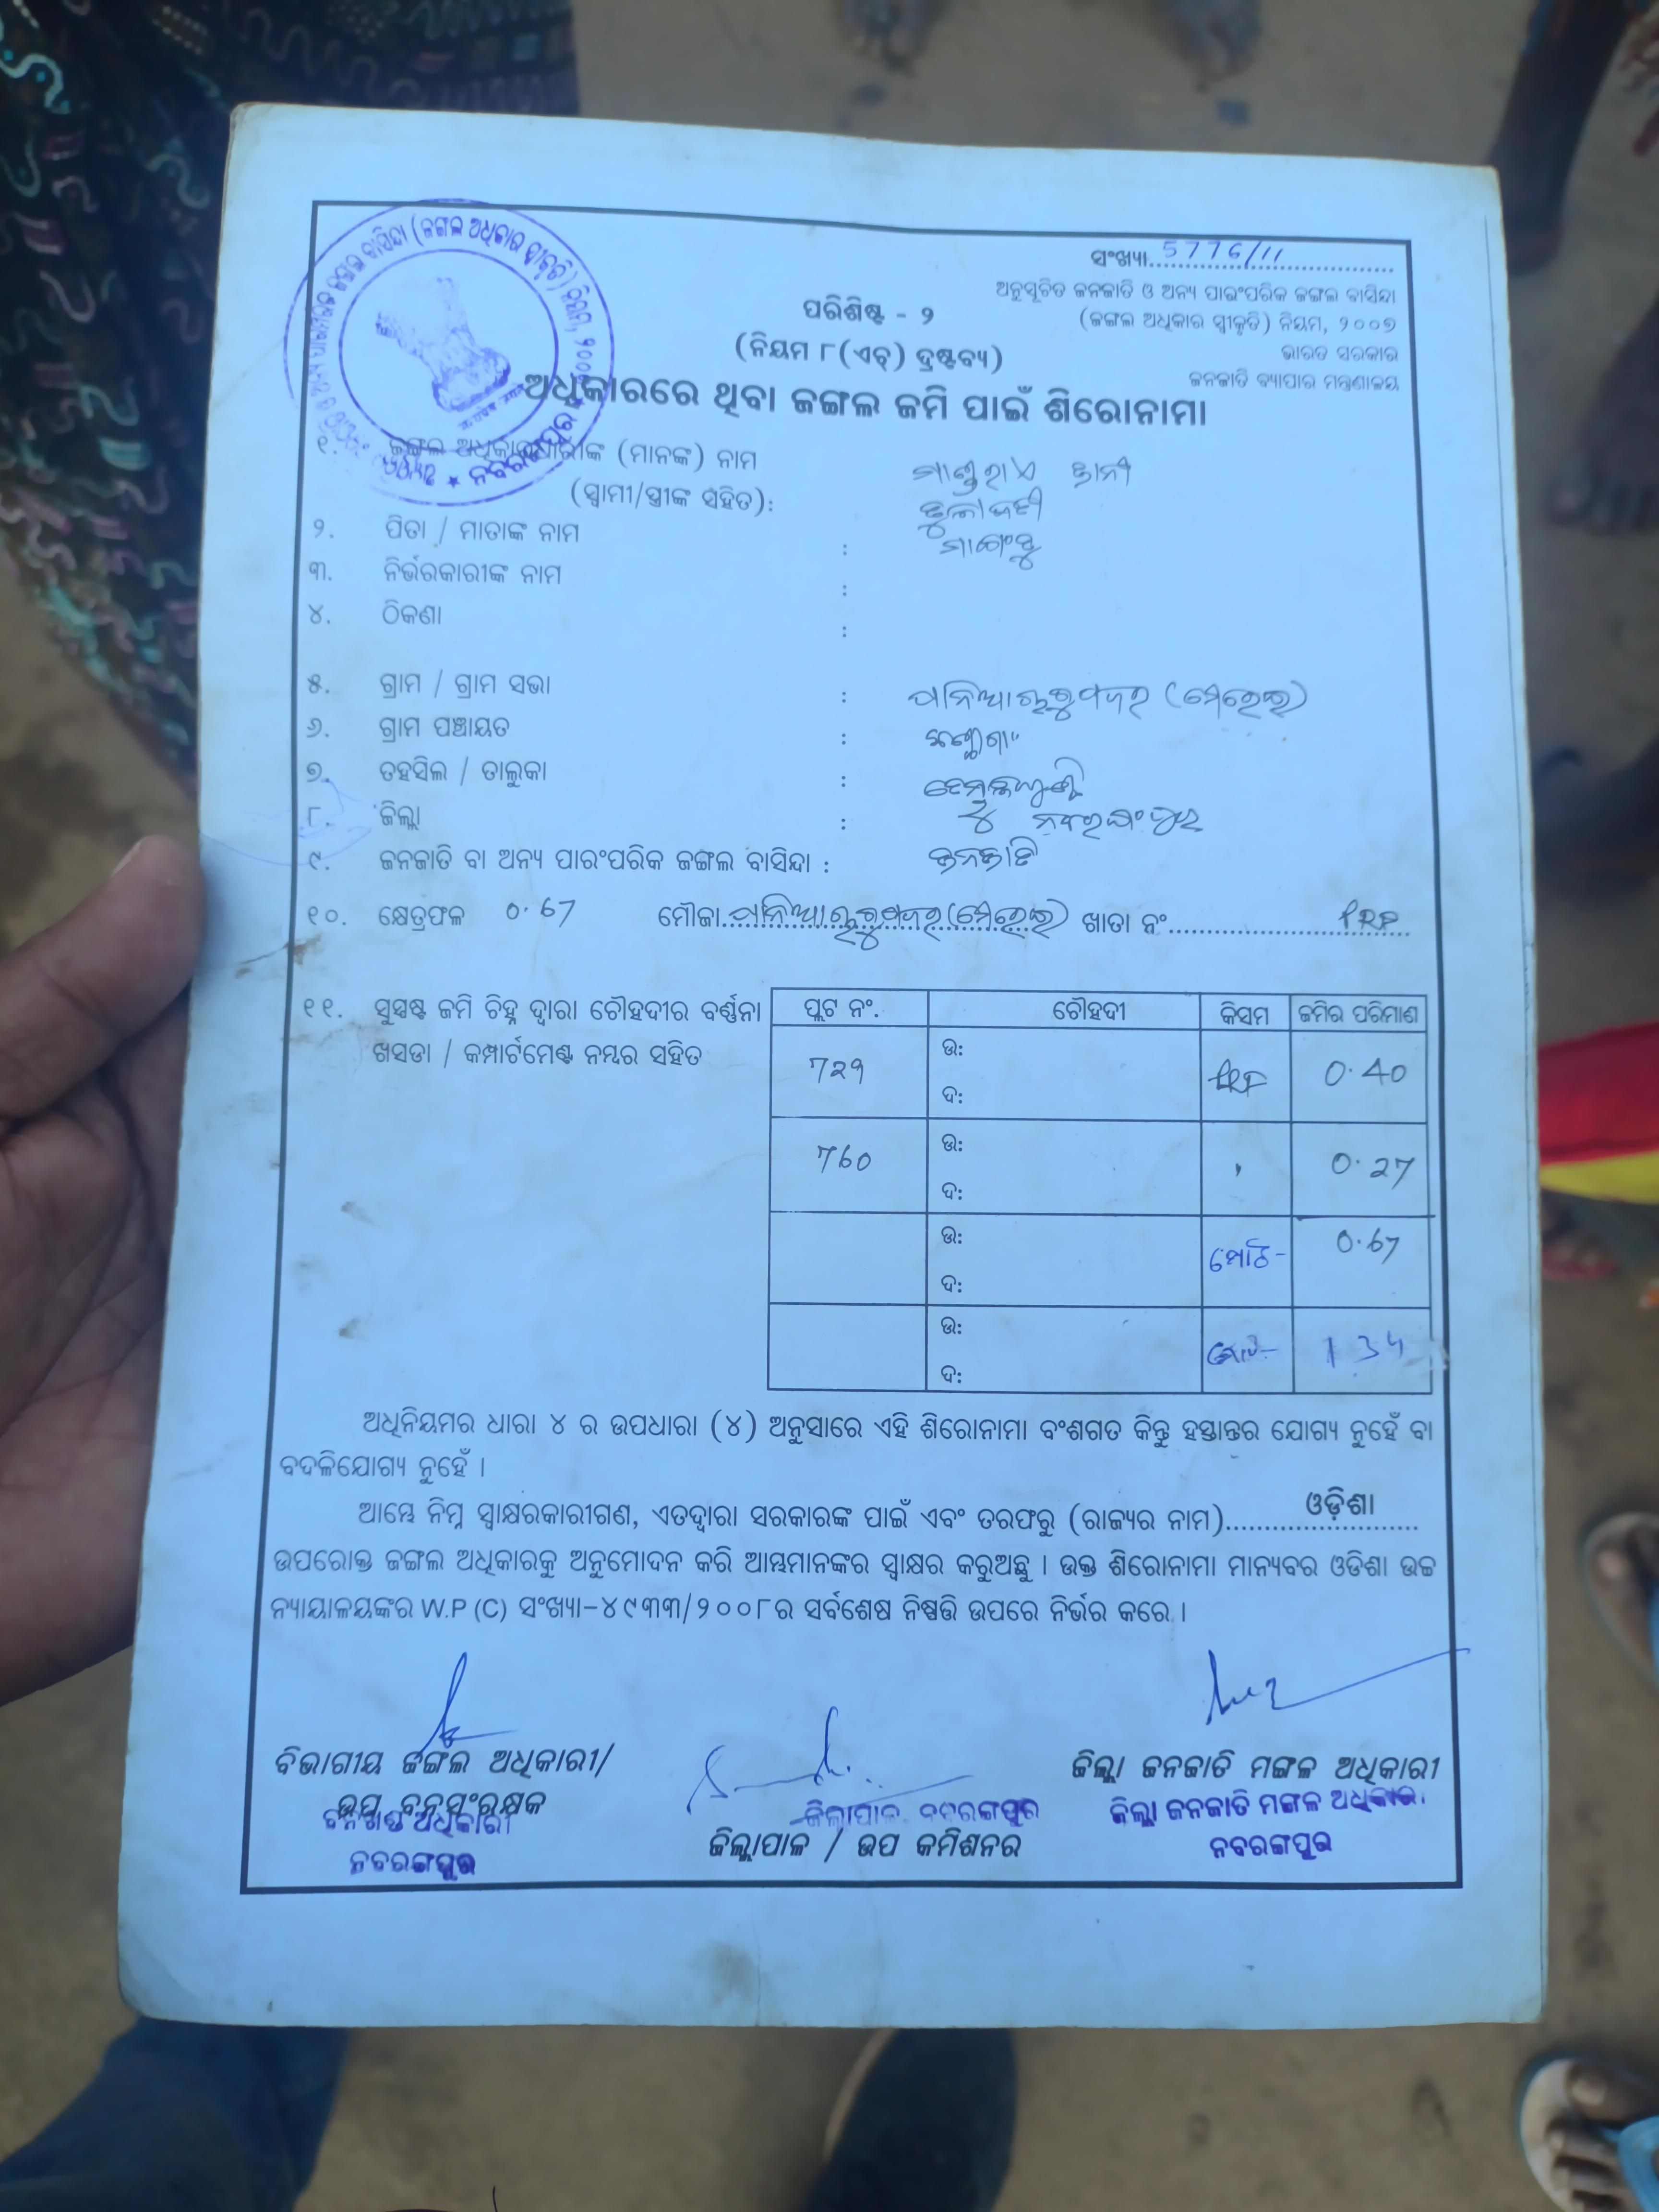 ସଂଖ୍ୟା 5776/11
ଅନୁସୂଚିତ ଜନଜାତି ଓ ଅନ୍ୟ ପାରଂପରିକ ଜଙ୍ଗଲ ବାସିନ୍ଦା
(ଜଙ୍ଗଲ ଅଧିକାର ସ୍ୱୀକୃତି) ନିୟମ, ୨୦୦୭
ଭାରତ ସରକାର
ଜନଜାତି ବ୍ୟାପାର ମନ୍ତ୍ରଣାଳୟ
ପରିଶିଷ୍ଟ - ୨
(ନିୟମ ୮(ଏଚ୍) ଦ୍ରଷ୍ଟବ୍ୟ)
ଅଧିକାରରେ ଥିବା ଜଙ୍ଗଲ ଜମି ପାଇଁ ଶିରୋନାମା
୧. ଜଙ୍ଗଲ ଅଧିକାରଧାରୀଙ୍କ (ମାନଙ୍କ) ନାମ
(ସ୍ୱାମୀ/ସ୍ତ୍ରୀଙ୍କ ସହିତ):
୨. ପିତା / ମାତାଙ୍କ ନାମ :
୩. ନିର୍ଭରକାରୀଙ୍କ ନାମ :
୪. ଠିକଣା :
୫. ଗ୍ରାମ / ଗ୍ରାମ ସଭା :
୬. ଗ୍ରାମ ପଞ୍ଚାୟତ :
୭. ତହସିଲ / ତାଲୁକା :
୮. ଜିଲ୍ଲା : ନବରଙ୍ଗପୁର
୯. ଜନଜାତି ବା ଅନ୍ୟ ପାରଂପରିକ ଜଙ୍ଗଲ ବାସିନ୍ଦା : ଜନଜାତି
୧୦. କ୍ଷେତ୍ରଫଳ 0.67 ମୌଜା ଖାତା ନଂ
୧୧. ସୁସ୍ପଷ୍ଟ ଜମି ଚିହ୍ନ ଦ୍ୱାରା ଚୌହଦୀର ବର୍ଣ୍ଣନା
ଖସଡା / କମ୍ପାର୍ଟମେଣ୍ଟ ନମ୍ବର ସହିତ
ପ୍ଲଟ ନଂ. ଚୌହଦୀ କିସମ ଜମିର ପରିମାଣ
729 ଉ: ଦ: 0.40
760 ଉ: ଦ: 0.27
ଉ: ଦ: 0.67
ଉ: ଦ:
ଅଧିନିୟମର ଧାରା ୪ ର ଉପଧାରା (୪) ଅନୁସାରେ ଏହି ଶିରୋନାମା ବଂଶଗତ କିନ୍ତୁ ହସ୍ତାନ୍ତର ଯୋଗ୍ୟ ନୁହେଁ ବା
ବଦଳିଯୋଗ୍ୟ ନୁହେଁ ।
ଆମ୍ଭେ ନିମ୍ନ ସ୍ୱାକ୍ଷରକାରୀଗଣ, ଏତଦ୍ୱାରା ସରକାରଙ୍କ ପାଇଁ ଏବଂ ତରଫରୁ (ରାଜ୍ୟର ନାମ) ଓଡ଼ିଶା
ଉପରୋକ୍ତ ଜଙ୍ଗଲ ଅଧିକାରକୁ ଅନୁମୋଦନ କରି ଆମ୍ଭମାନଙ୍କର ସ୍ୱାକ୍ଷର କରୁଅଛୁ । ଉକ୍ତ ଶିରୋନାମା ମାନ୍ୟବର ଓଡିଶା ଉଚ୍ଚ
ନ୍ୟାୟାଳୟଙ୍କର W.P (C) ସଂଖ୍ୟା-୪୯୩୩/୨୦୦୮ର ସର୍ବଶେଷ ନିଷ୍ପତ୍ତି ଉପରେ ନିର୍ଭର କରେ ।
ବିଭାଗୀୟ ଜଙ୍ଗଲ ଅଧିକାରୀ/
ଉପ ବନସଂରକ୍ଷକ
ବନଖଣ୍ଡ ଅଧିକାରୀ
ନବରଙ୍ଗପୁର
ଜିଲ୍ଲାପାଳ, ନବରଙ୍ଗପୁର
ଜିଲ୍ଲାପାଳ / ଉପ କମିଶନର
ଜିଲ୍ଲା ଜନଜାତି ମଙ୍ଗଳ ଅଧିକାରୀ
ଜିଲ୍ଲା ଜନଜାତି ମଙ୍ଗଳ ଅଧିକାରୀ
ନବରଙ୍ଗପୁର